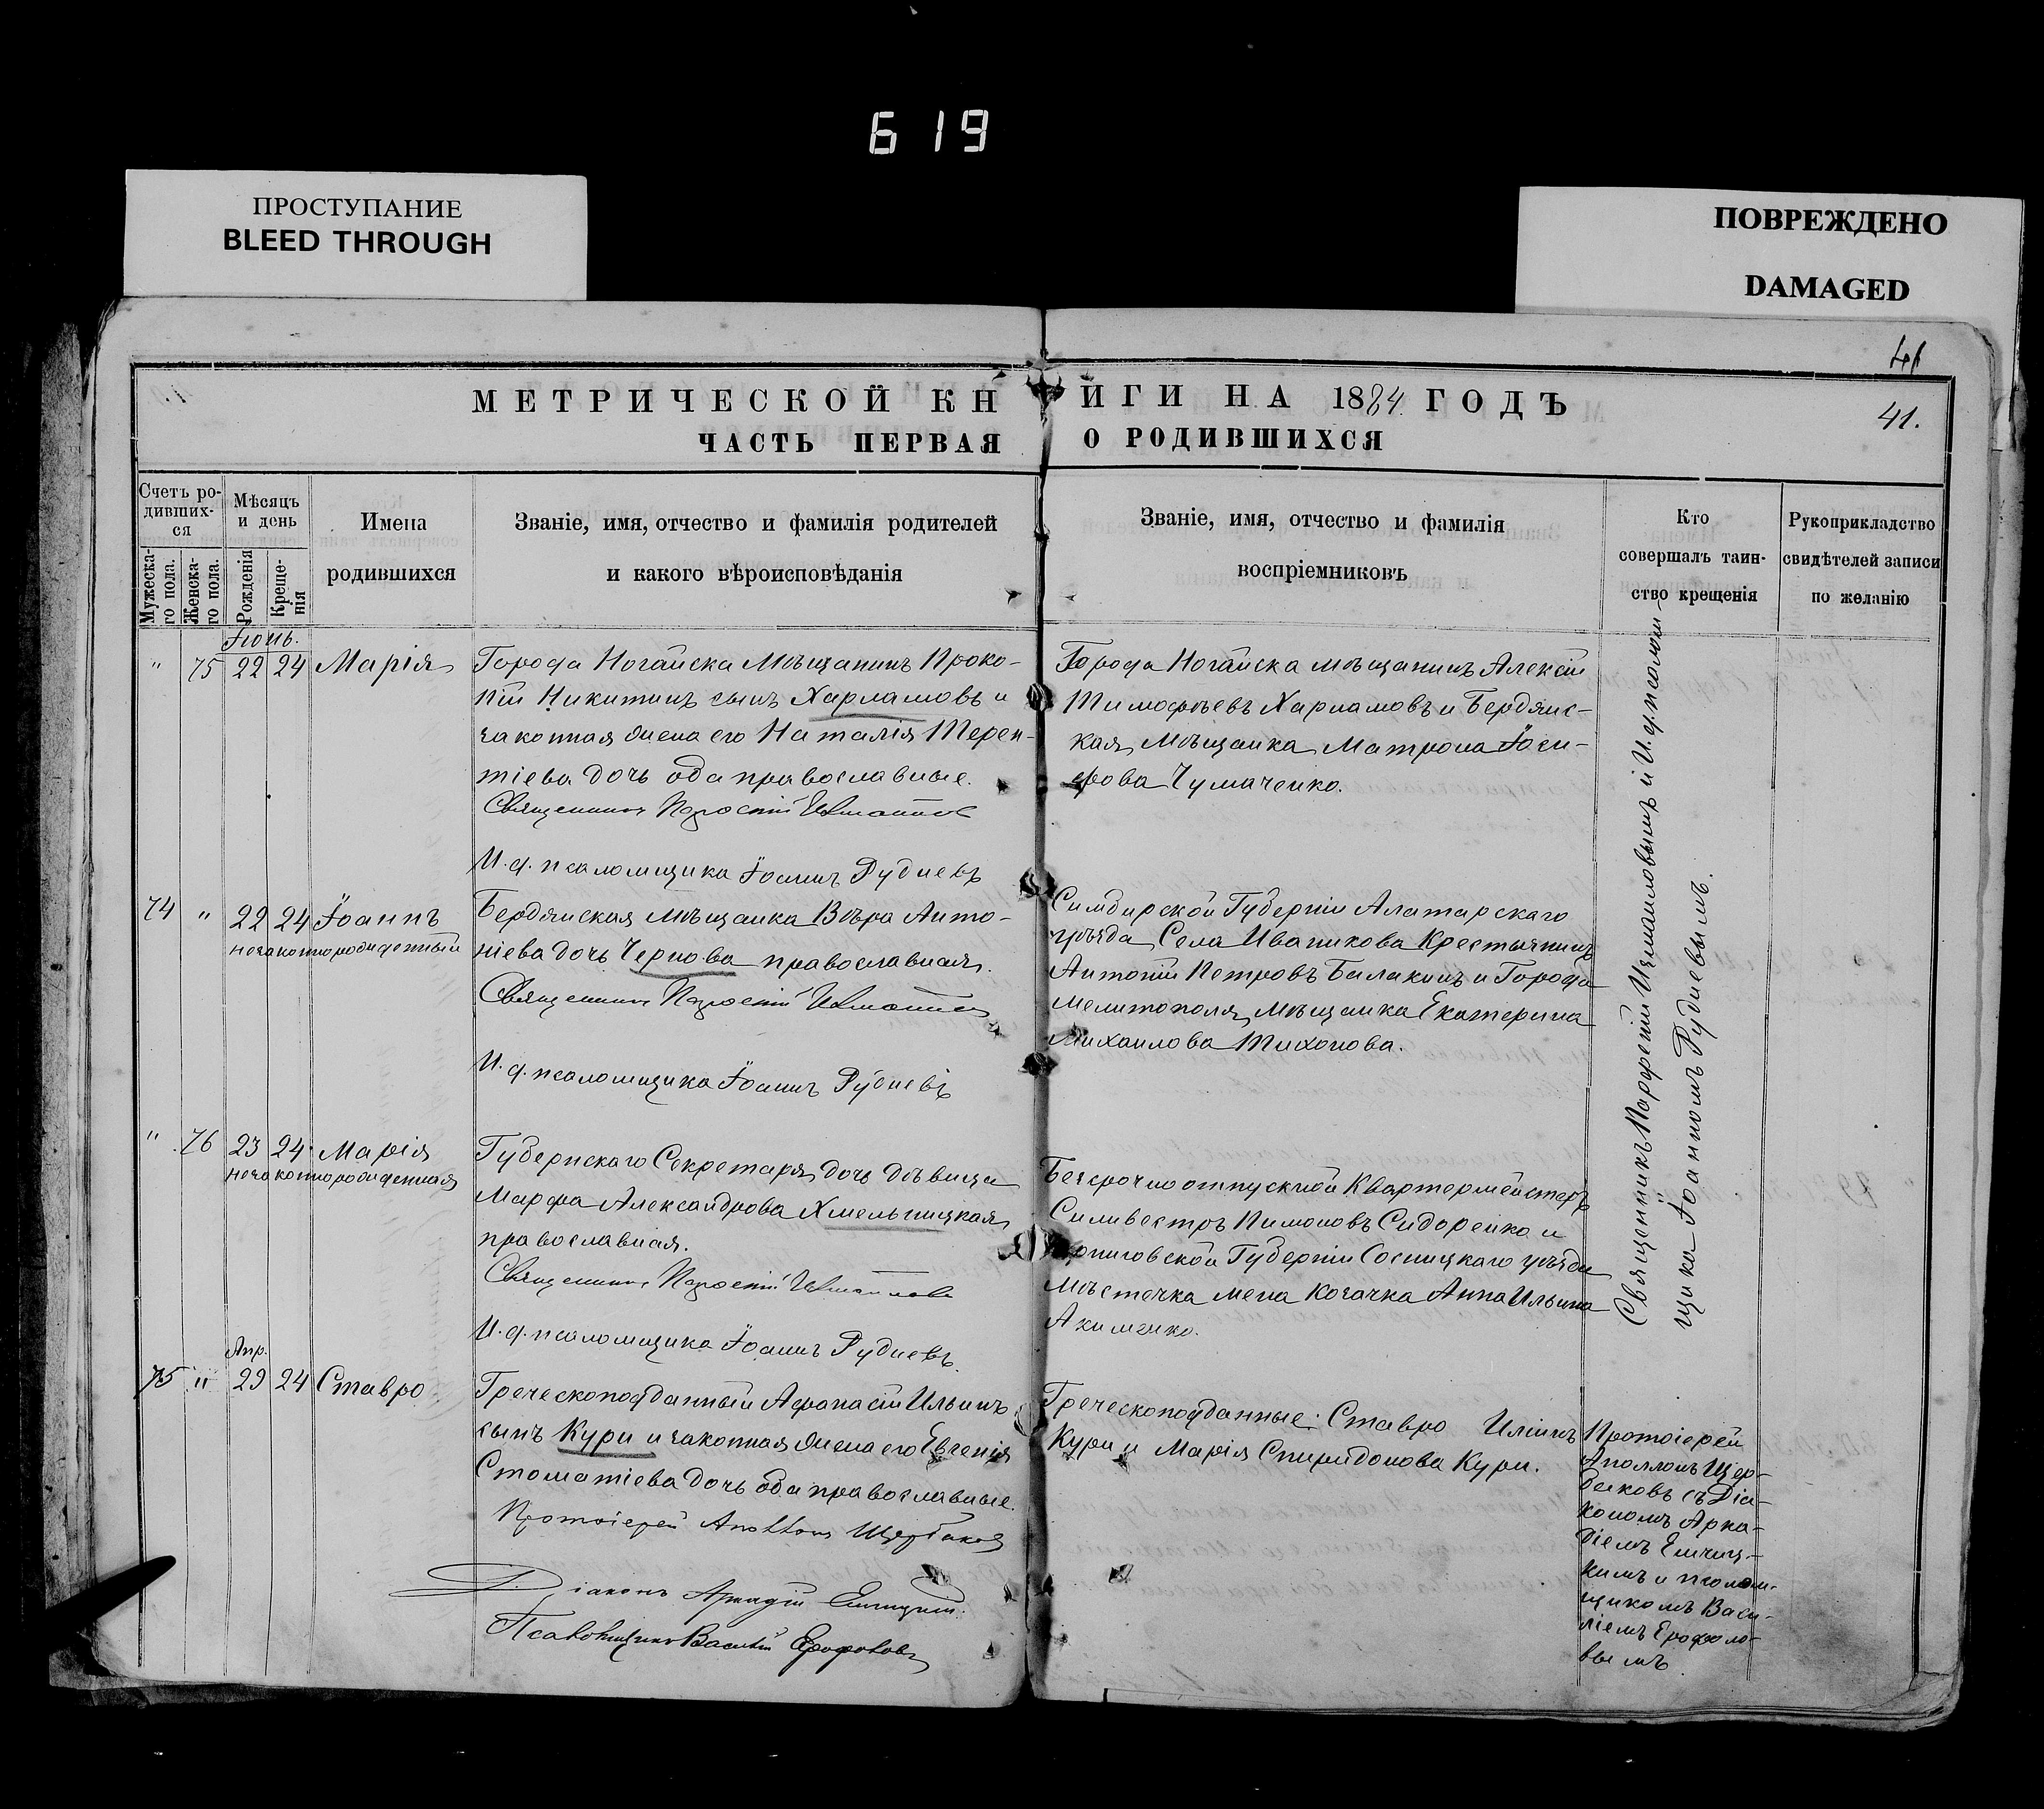 619
ПРОСТУПАНИЕ
BLEED THROUGH
ПОВРЕЖДЕНО
DAMAGED
41
МЕТРИЧЕСКОЙ КН
ИГИ НА 1884 ГОДЪ
41.
ЧАСТЬ ПЕРВАЯ
О РОДИВШИХСЯ
Счетъ ро-
дивших-
ся
Мужеска-
го пола.
Женска-
го пола.
Мѣсяцъ
и день
Рожденія
Креще-
нія
Имена
родившихся
Званіе, имя, отчество и фамилія родителей
и какого вѣроисповѣданія
Званіе, имя, отчество и фамилія
воспріемниковъ
Кто
совершалъ таин-
ство крещенія
Рукоприкладство
свидѣтелей записи
по желанію
Іюнь.
" 75 22 24 Марія
Города Ногайска Мѣщанинъ Проко-
пій Никитинъ сынъ Харламовъ и
законная жена его Наталія Терен-
тіева дочь оба православные.
Священникъ Парфеній Измаиловъ
И. д. псаломщика Іоаннъ Рудневъ
Города Ногайска мѣщанинъ Алексій
Тимофѣевъ Харламовъ и Бердянс-
кая Мѣщанка Матрона Іоси-
фова Чумаченко.
74 " 22 24 Іоаннъ
незаконнорожденный
Бердянская Мѣщанка Вѣра Анто-
ніева дочь Чернова православная.
Священникъ Парфеній Измаиловъ
И. д. псаломщика Іоаннъ Рудневъ
Симбирской Губерніи Алатарскаго
уѣзда Села Иванкова Крестьянинъ
Антоній Петровъ Балакинъ и Города
Мелитополя Мѣщанка Екатерина
Михаилова Тихонова.
" 76 23 24 Марія
незаконнорожденная
Губернскаго Секретаря дочь дѣвица
Марфа Александрова Хмельницкая
православная.
Священникъ Парфеній Измаиловъ
И. д. псаломщика Іоаннъ Рудневъ.
Безсрочноотпускной Квартермейстеръ
Силивестръ Пимоновъ Сидоренко и
Черниговской Губерніи Сосницкаго уѣзда
Мѣстечка Мена Козачка Анна Ильина
Акименко.
Священникъ Парфеній Измаиловымъ и И. д. псалом-
щика Іоанномъ Рудневымъ.
Апр.
75 " 29 24 Ставро
Греческоподданный Афанасій Ильинъ
сынъ Кури и законная жена его Евгенія
Стоматіева дочь оба православные.
Протоіерей Аполлонъ Щербаковъ
Діаконъ Аркадій
Псаломщикъ Василій Ерофаловъ
Греческоподданные: Ставро Иліинъ
Кури и Марія Спиридонова Кури.
Протоіерей
Аполлонъ Щер-
баковъ съ Діа-
кономъ Арка-
діемъ
кимъ и псалом-
щикомъ Васи-
ліемъ Ерофало-
вымъ.